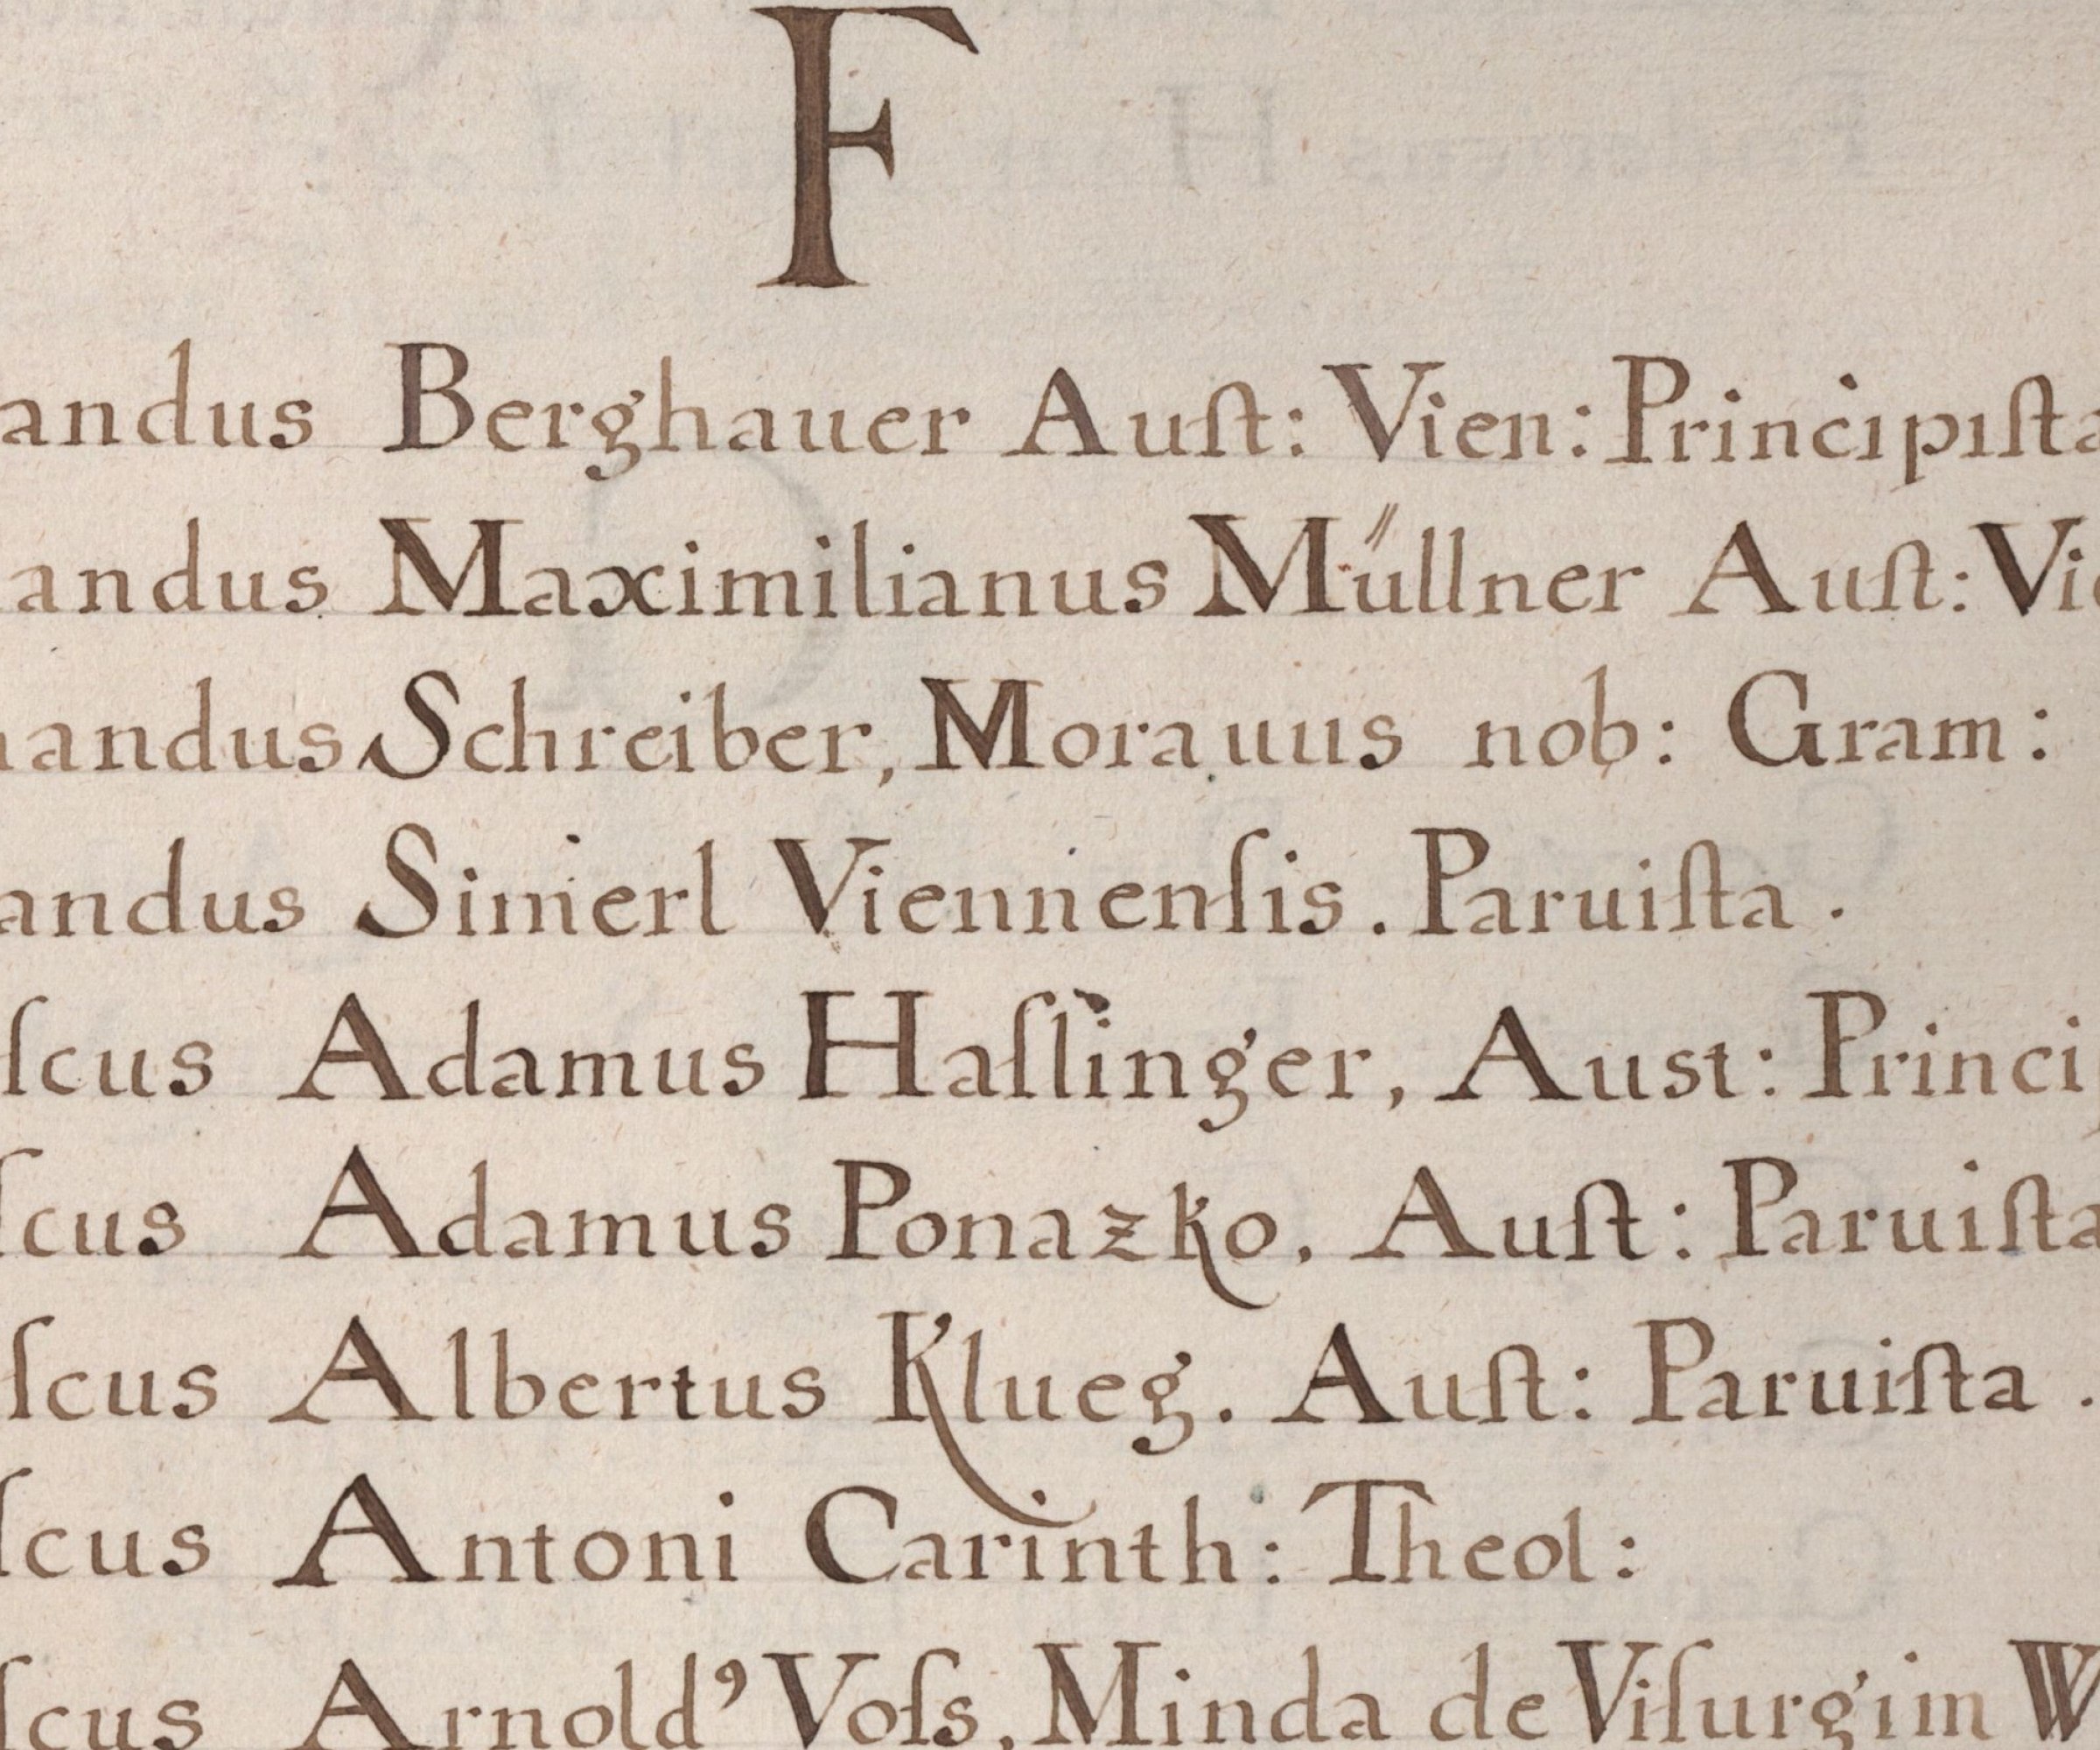 F
andus Berghauer Auſt: Vien: Principiſta
andus Maximilianus Müllner Auſt: Vie
andus Schreiber, Morauus nob: Gram:
andus Simerl Viennenſis. Paruiſta.
ſcus Adamus Haſſinger, Aust: Princip
ſcus Adamus Ponazko, Auſt: Paruiſta
ſcus Albertus Klueg. Auſt: Paruiſta.
ſcus Antoni Carinth: Theol:
ſcus Arnold⁹ Voſs, Minda de Viſurgim W